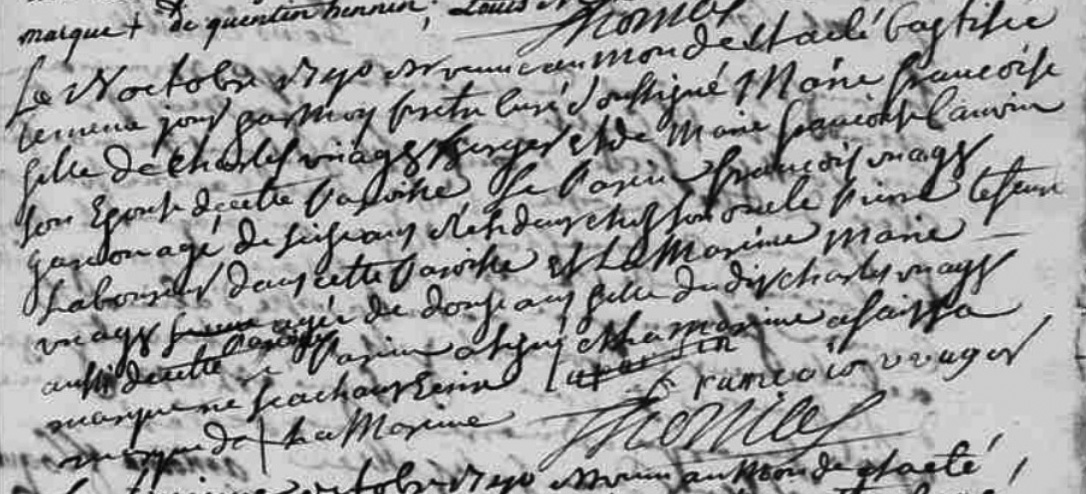 marque + de quentin hennin, Louis
Thomas
Le octobre 1740 est venue au monde et a eté baptisée
le meme jour par moy pretre curé soussigné Marie francoise
fille de charles vuagz Berger et de Marie francoise
son Epouse de cette Paroisse Le Parin francois vuagz
garcon agé de seize ans residant chez son oncle Pierre
Laboureur dans cette Paroisse et La Marine Marie
vuagz agée de douze ans fille dudit charles vuagz
aussi de cette Paroisse Le Parin a signé et La marine a fait sa
marque ne scachant Ecrire
francois vuager
marque de + La Marine
Thomas
octobre 1740 est venu au Monde et a eté